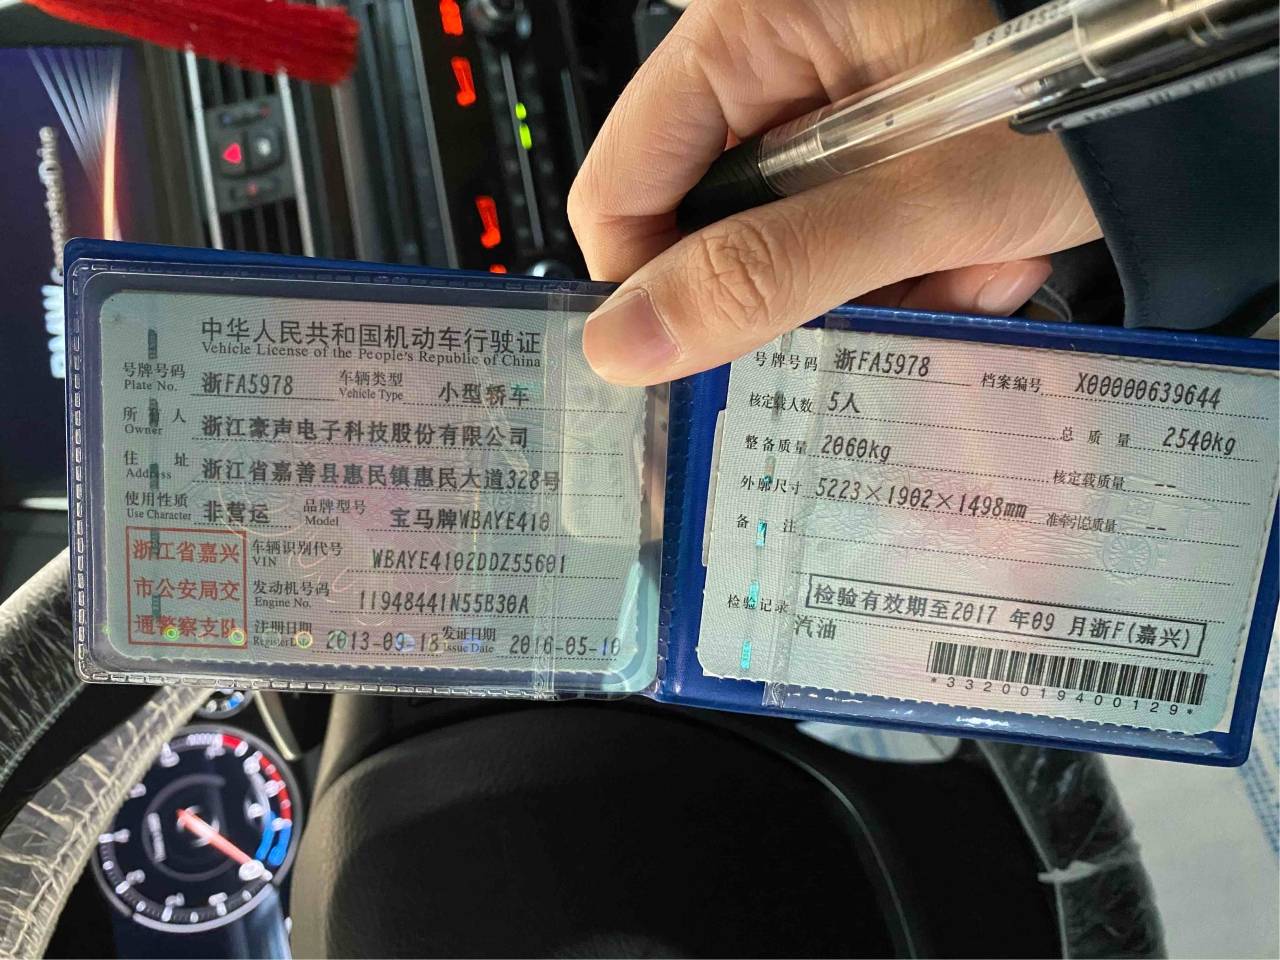 中华人民共和国机动车行驶证
Vehicle License of the People's Republic of China
号牌号码 浙FA5978 车辆类型 小型轿车
Plate No. Vehicle Type
所有人 浙江豪声电子科技股份有限公司
Owner
住址 浙江省嘉善县惠民镇惠民大道328号
Address
使用性质 非营运 品牌型号 宝马牌WBAYE410
Use Character Model
浙江省嘉兴
市公安局交
通警察支队
车辆识别代号 WBAYE4102DDZ55601
VIN
发动机号码 11948441N55B30A
Engine No.
注册日期 2013-09-18 发证日期 2016-05-10
Register Date Issue Date
号牌号码 浙FA5978 档案编号 X00000639644
核定载人数 5人 总质量 2540kg
整备质量 2060kg 核定载质量 --
外廓尺寸 5223×1902×1498mm 准牵引总质量 --
备注
检验记录 检验有效期至2017 年09 月浙F(嘉兴)
汽油
*3320019400129*